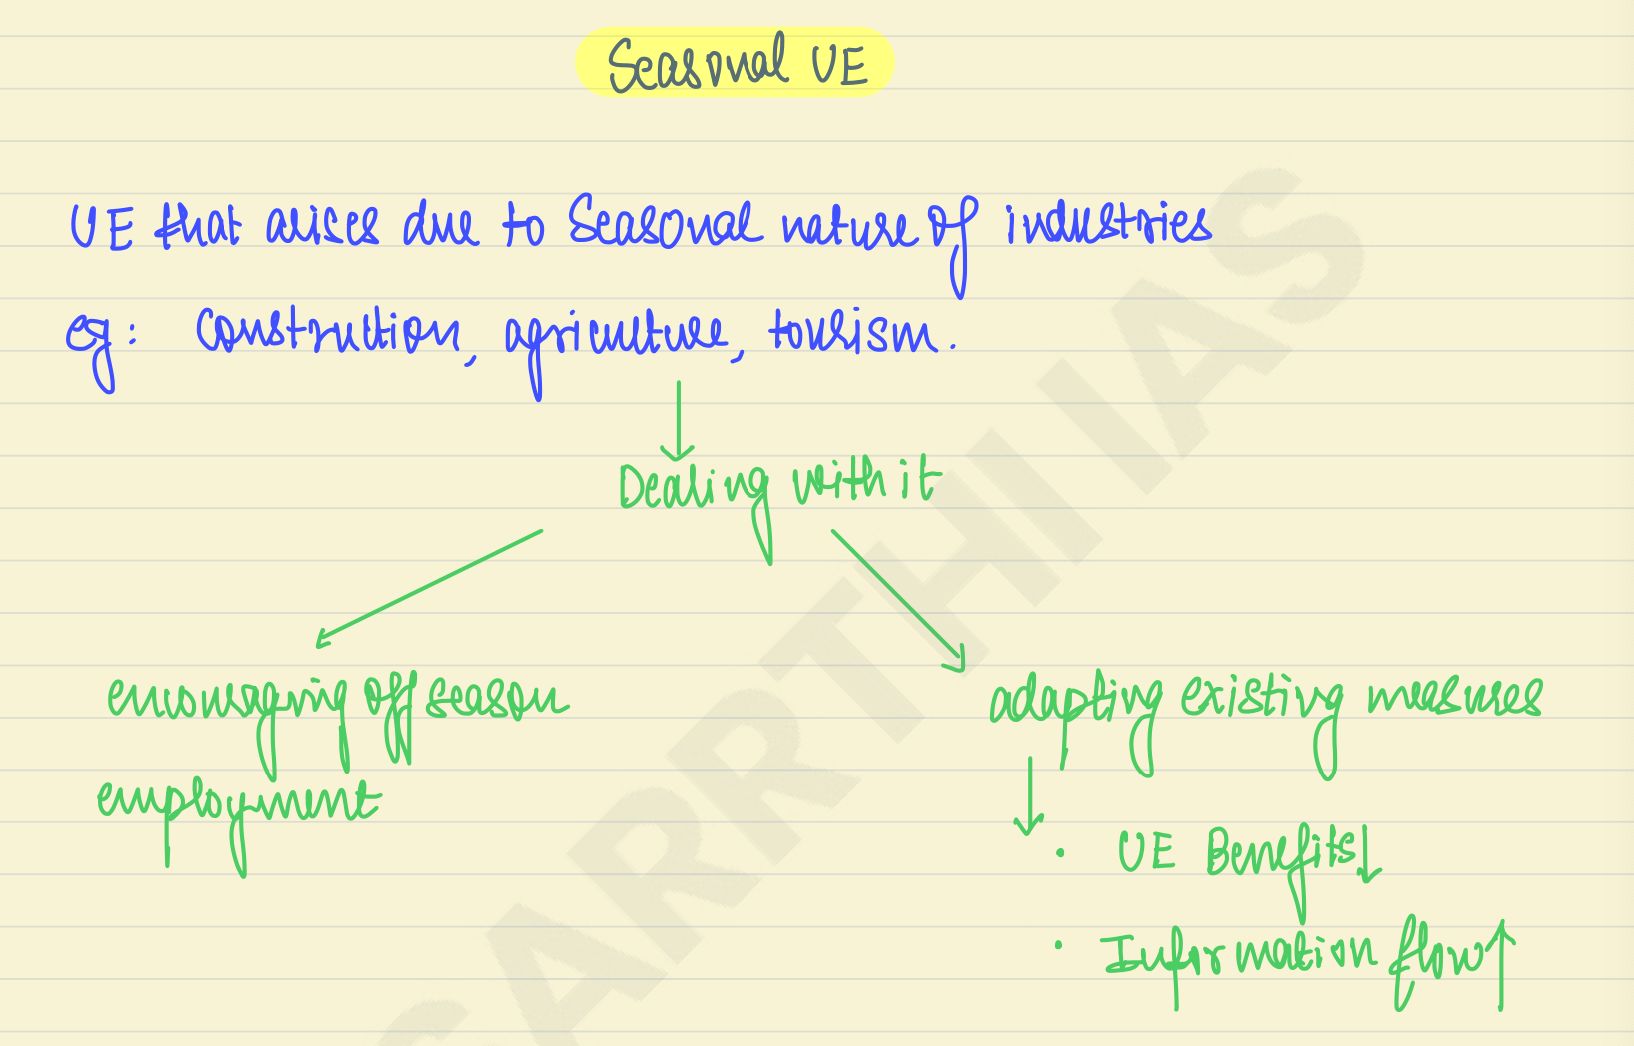 Seasonal UE
UE that arises due to Seasonal nature of industries
eg: Construction, agriculture, tourism.
↓
Dealing with it
encouraging off season
employment
adapting existing measures
↓
· UE Benefits↓
· Information flow↑
SARRTHI IAS